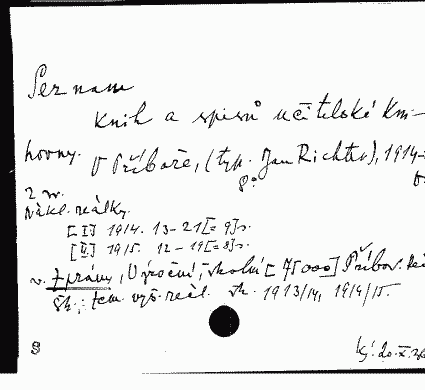 Seznam
knih a spisů učitelské kni-
hovny. V Příboře, (typ. Jan Richter), 1914-
8°.
2 sv.
Nákl. reálky.
[I] 1914. 13-21[=9]s.
[II.] 1915. 12-19[=8]s.
v. Zprávy, Výroční, školní [75000] Příbor.
šk. zem. vyš. reál. šk. 1913/14, 1914/15.